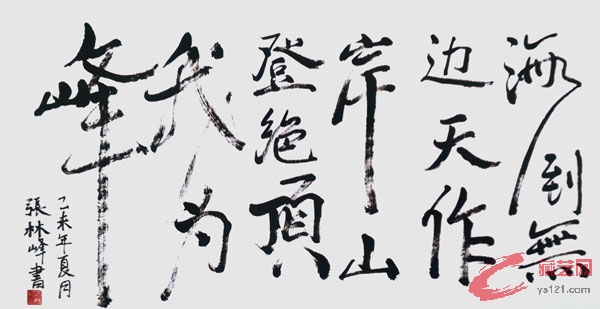 海到無
边天作
岸山
登絕頂
我为
峰
乙未年夏月
張林峰書
藏艺网
ys121.com